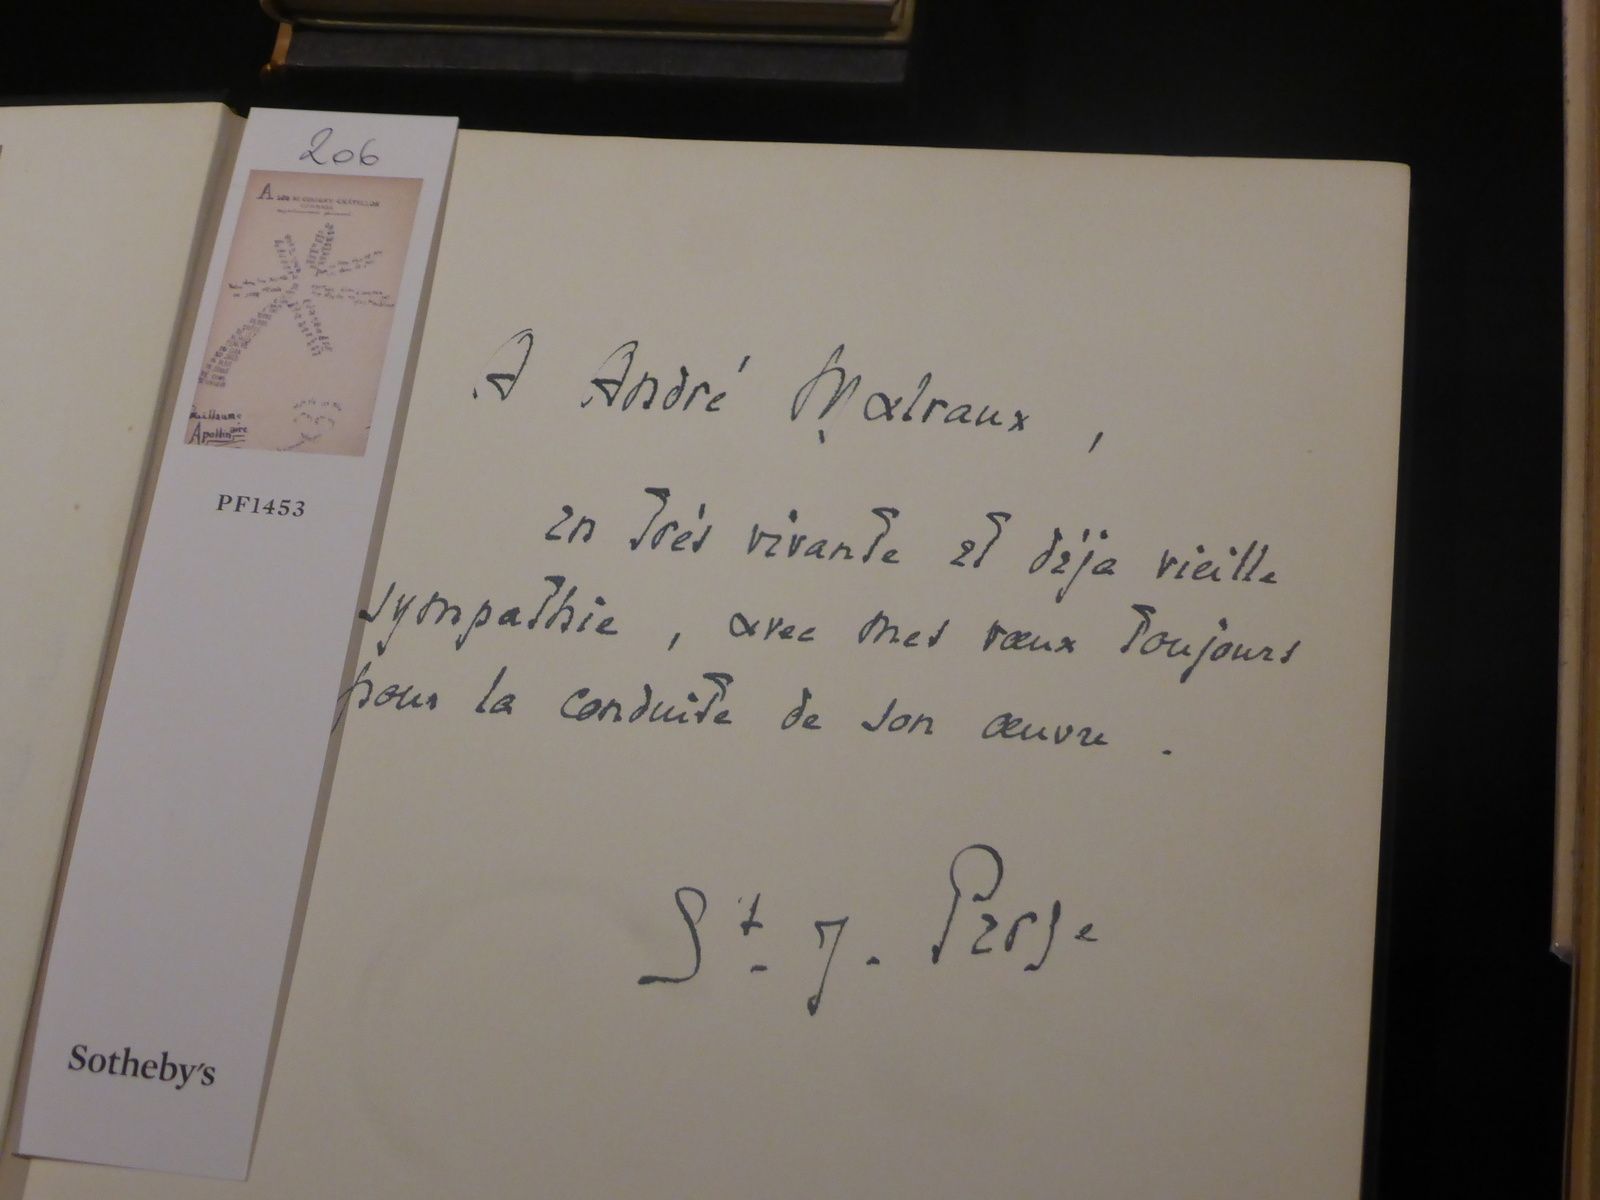 206
A
Guillaume
Apollinaire
PF1453
Sotheby's
A André Malraux,
en très vivante et déjà vieille
sympathie, avec mes vœux toujours
pour la conduite de son œuvre.
St. J. Perse